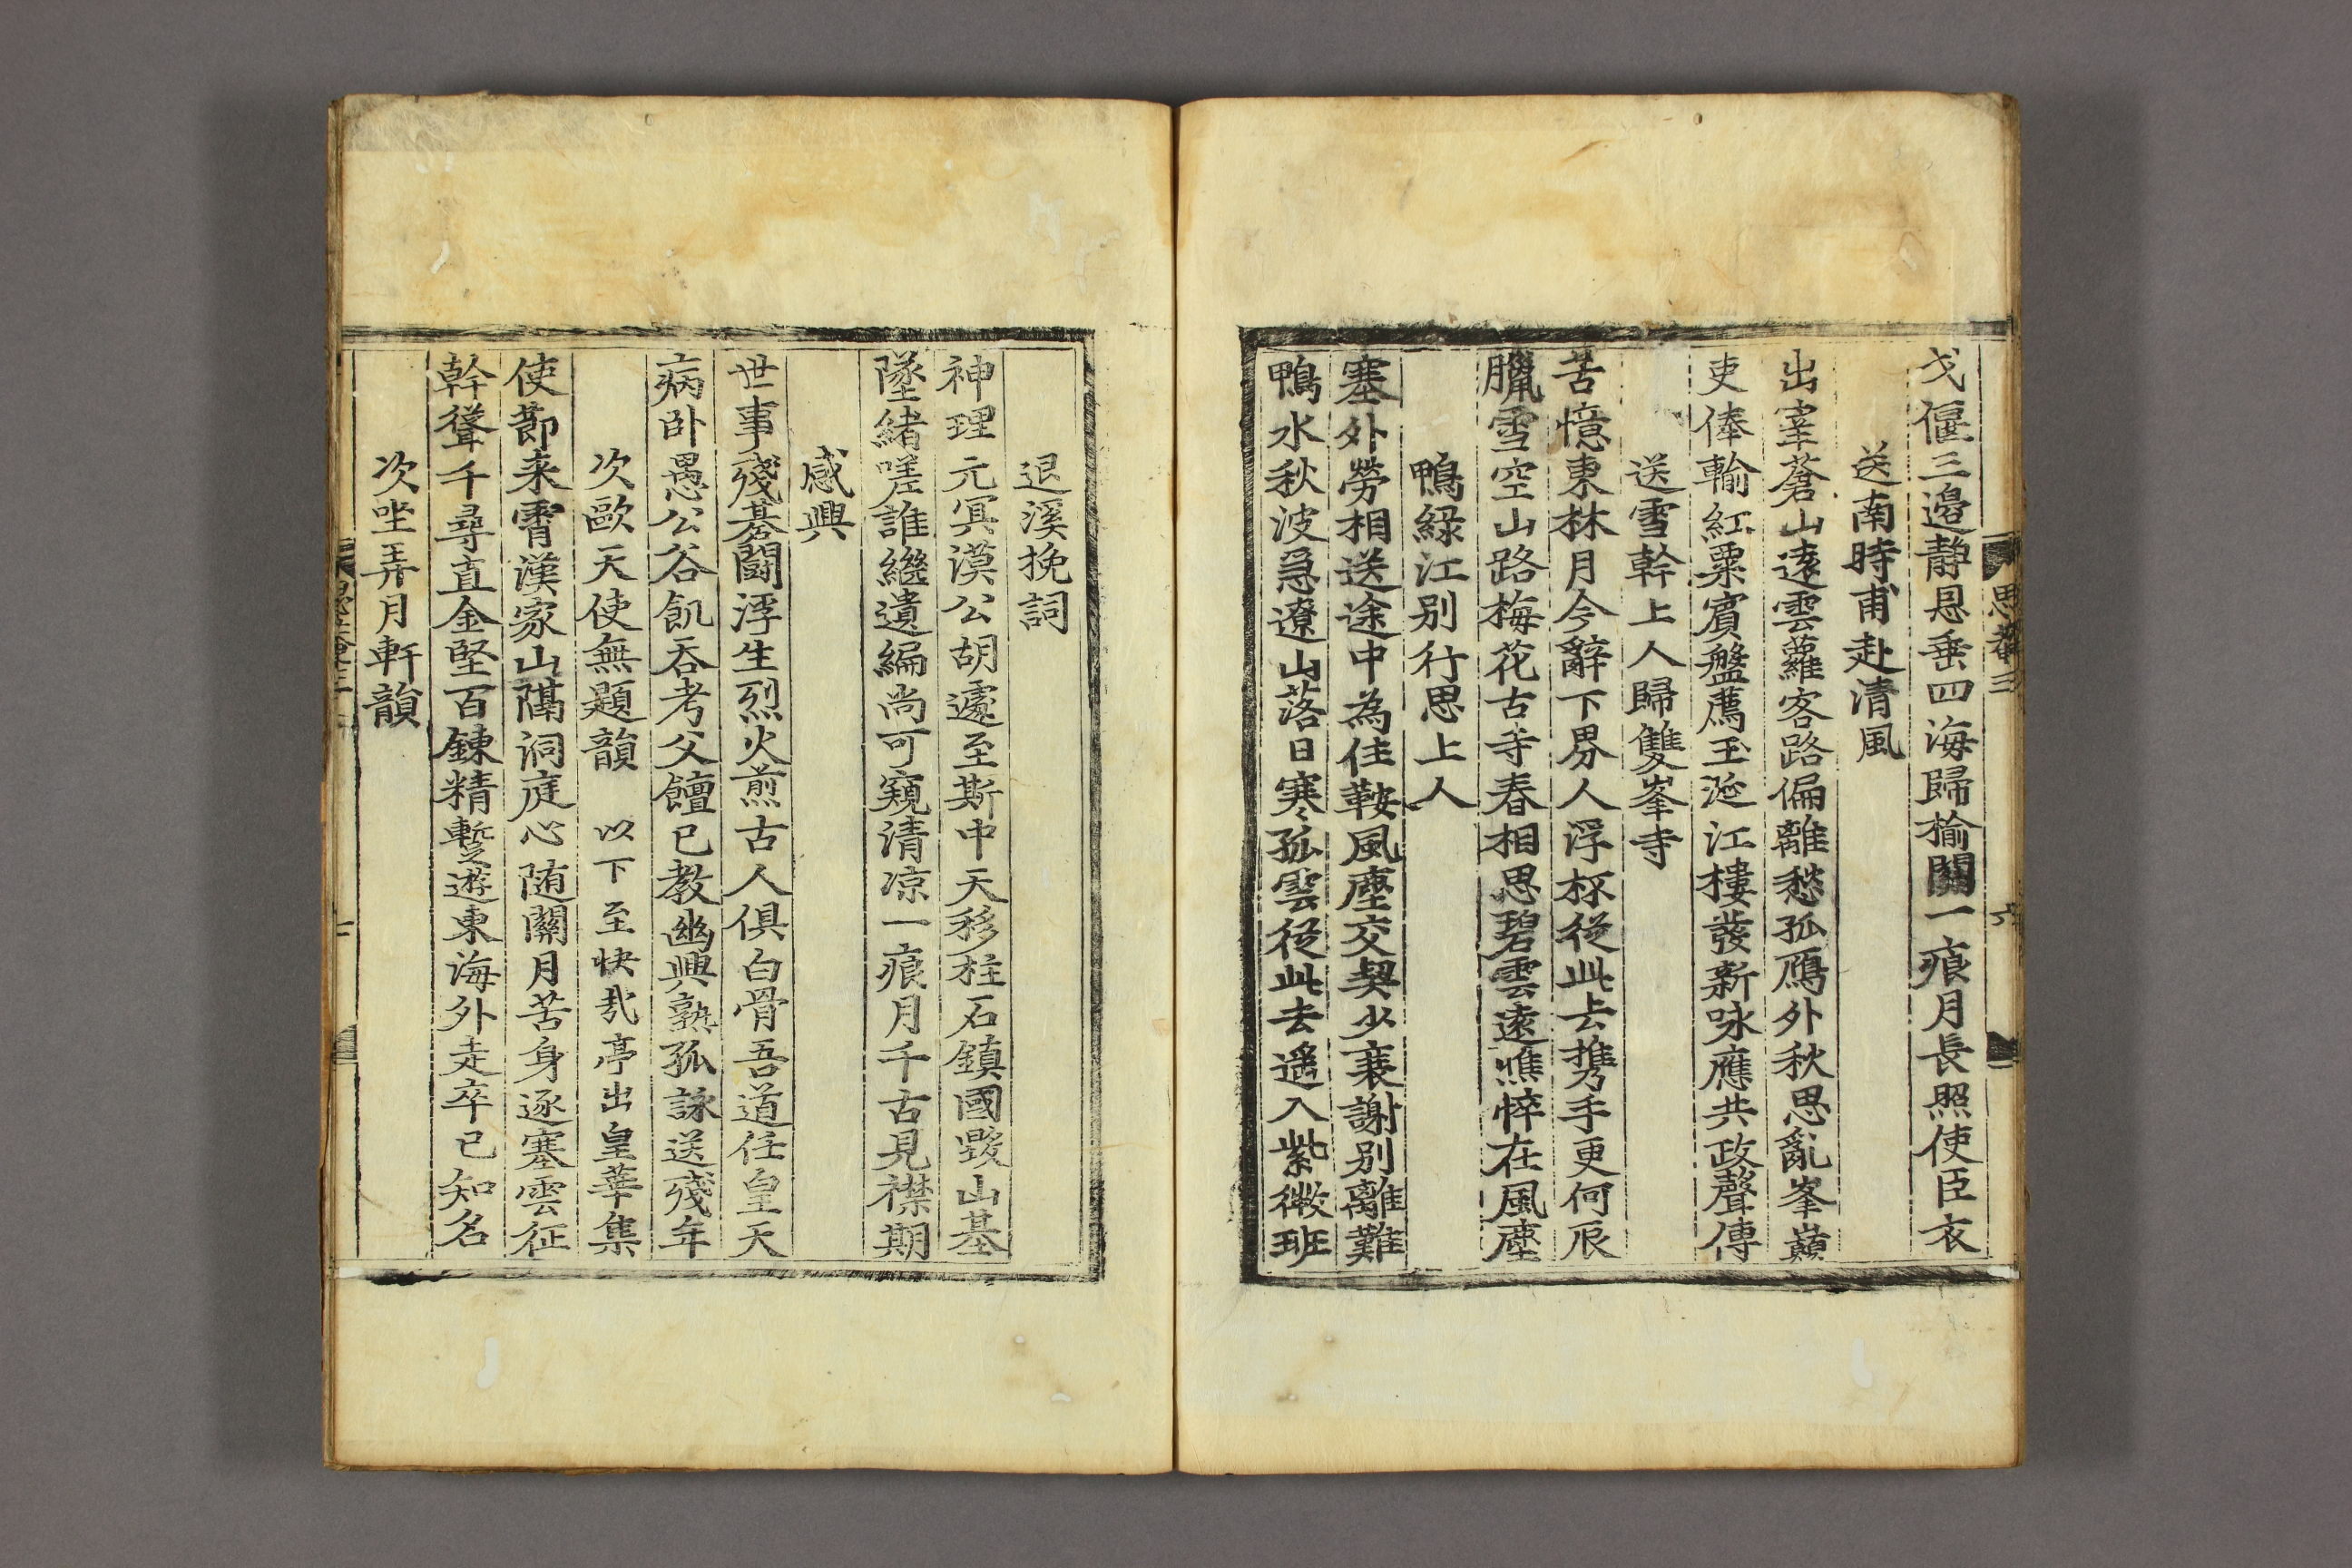 思菴三
戈偃三邊靜恩垂四海歸楡關一痕月長照使臣衣
送南時甫赴清風
出宰蒼山遠雲蘿客路偏離愁孤鴈外秋思亂峯巔
吏俸輸紅粟賓盤薦玉涎江樓發新咏應共政聲傳
送雪幹上人歸雙峯寺
苦憶東林月今辭下界人浮杯從此去携手更何辰
臘雪空山路梅花古寺春相思碧雲遠憔悴在風塵
鴨緑江別行思上人
塞外勞相送途中為佳鞍風塵交契少衰謝別離難
鴨水秋波急遼山落日寒孤雲從此去遥入紫微班
退溪挽詞
神理元冥漠公胡遽至斯中天移柱石鎮國毀山基
墜緒嗟誰繼遺編尚可窺清凉一痕月千古見襟期
感興
世事殘碁鬪浮生烈火煎古人俱白骨吾道任皇天
病卧愚公谷飢吞考父饘已教幽興熟孤詠送殘年
次歐天使無題韻 以下至快哉亭出皇華集
使節来霄漢家山隔洞庭心随關月苦身逐塞雲征
幹聳千尋直金堅百鍊精暫遊東海外走卒已知名
次坐弄月軒韻